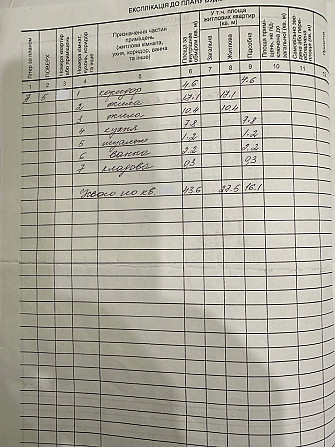 ЕКСПЛІКАЦІЯ ДО ПЛАНУ БУД
Літер за планом
ПОВЕРХ
Номер квартир або приміщень
Номера кімнат, кухонь, коридор та інше
Призначення частин приміщень (житлова кімната, ухня, коридор, ванна та інше)
Площа за внутрішнім обміром (кв. м)
У т.ч. площа житлових квартир (кв. м)
Загальна
Житлова
Підсобна
1 2 3 4 5 6 7 8 9 10 11
А 5 1 коридор 4.6 4.6
2 жила 17.1 17.1
3 жила 10.4 10.4
4 кухня 7.8 7.8
5 1.2 1.2
6 ванна 2.2 2.2
7 кладова 0.3 0.3
Усього по кв. 43.6 27.5 16.1